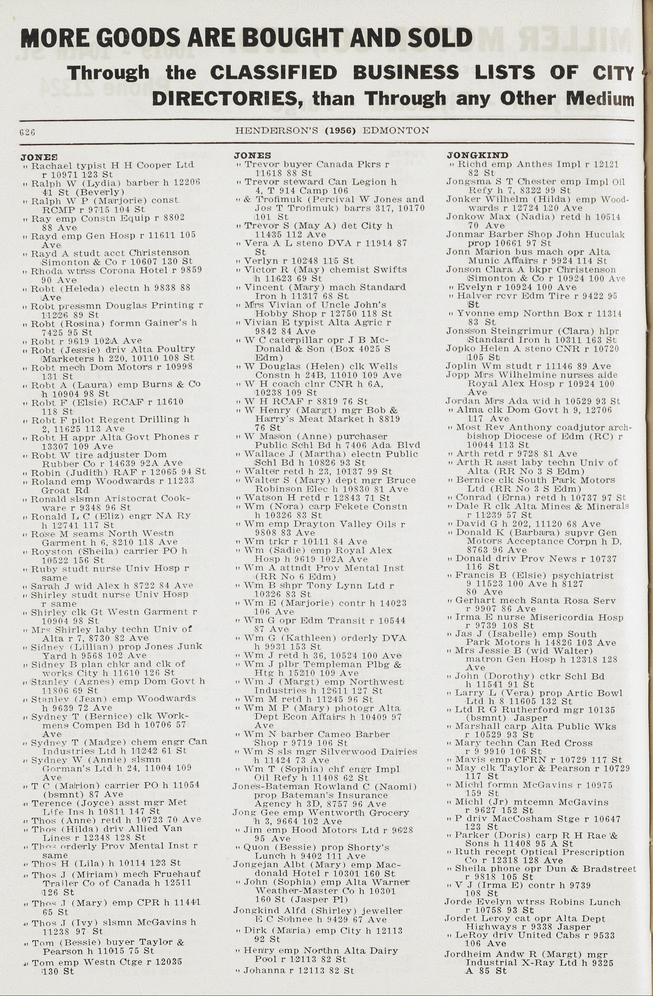 MORE GOODS ARE BOUGHT AND SOLD
Through the CLASSIFIED BUSINESS LISTS OF CITY
DIRECTORIES, than Through any Other Medium
626
HENDERSON'S (1956) EDMONTON
JONES
" Rachael typist H H Cooper Ltd
r 10971 123 St
" Ralph W (Lydia) barber h 12206
41 St (Beverly)
" Ralph W P (Marjorie) const
RCMP r 9715 104 St
" Ray emp Constn Equip r 8802
88 Ave
" Rayd emp Gen Hosp r 11611 105
Ave
" Rayd A studt acct Christenson
Simonton & Co r 10607 130 St
" Rhoda wtrss Corona Hotel r 9859
90 Ave
" Robt (Heleda) electn h 9838 88
Ave
" Robt pressmn Douglas Printing r
11226 89 St
" Robt (Rosina) formn Gainer's h
7425 95 St
" Robt r 9619 102A Ave
" Robt (Jessie) driv Alta Poultry
Marketers h 220, 10110 108 St
" Robt mech Dom Motors r 10998
131 St
" Robt A (Laura) emp Burns & Co
h 10904 98 St
" Robt F (Elsie) RCAF r 11610
118 St
" Robt F pilot Regent Drilling h
2, 11625 113 Ave
" Robt H appr Alta Govt Phones r
13307 109 Ave
" Robt W tire adjuster Dom
Rubber Co r 14639 92A Ave
" Robin (Judith) RAF r 12065 94 St
" Roland emp Woodwards r 11233
Groat Rd
" Ronald slsmn Aristocrat Cook-
ware r 9348 96 St
" Ronald L C (Eliz) engr NA Ry
h 12741 117 St
" Rose M seams North Westn
Garment h 6, 8210 118 Ave
" Royston (Sheila) carrier PO h
10522 156 St
" Ruby studt nurse Univ Hosp r
same
" Sarah J wid Alex h 8722 84 Ave
" Shirley studt nurse Univ Hosp
r same
" Shirley clk Gt Westn Garment r
10904 98 St
" Mrs Shirley laby techn Univ of
Alta r 7, 8730 82 Ave
" Sidney (Lillian) prop Jones Junk
Yard h 9568 102 Ave
" Sidney B plan chkr and clk of
works City h 11610 126 St
" Stanley (Agnes) emp Dom Govt h
11806 69 St
" Stanley (Jean) emp Woodwards
h 9639 72 Ave
" Sydney T (Bernice) clk Work-
mens Compen Bd h 10706 57
Ave
" Sydney T (Madge) chem engr Can
Industries Ltd h 11242 61 St
" Sydney W (Annie) slsmn
Gorman's Ltd h 24, 11004 109
Ave
" T C (Marion) carrier PO h 11054
(bsmnt) 87 Ave
" Terence (Joyce) asst mgr Met
Life Ins h 10811 147 St
" Thos (Anne) retd h 10723 70 Ave
" Thos (Hilda) driv Allied Van
Lines r 12348 128 St
" Thos orderly Prov Mental Inst r
same
" Thos H (Lila) h 10114 123 St
" Thos J (Miriam) mech Fruehauf
Trailer Co of Canada h 12511
126 St
" Thos J (Mary) emp CPR h 11441
65 St
" Thos J (Ivy) slsmn McGavins h
11238 97 St
" Tom (Bessie) buyer Taylor &
Pearson h 11015 75 St
" Tom emp Westn Ctge r 12035
130 St
JONES
" Trevor buyer Canada Pkrs r
11618 88 St
" Trevor steward Can Legion h
4, T 914 Camp 106
" & Trofimuk (Percival W Jones and
Jos T Trofimuk) barrs 317, 10170
101 St
" Trevor S (May A) det City h
11435 112 Ave
" Vera A L steno DVA r 11914 87
St
" Verlyn r 10248 115 St
" Victor R (May) chemist Swifts
h 11623 69 St
" Vincent (Mary) mach Standard
Iron h 11317 68 St
" Mrs Vivian of Uncle John's
Hobby Shop r 12750 118 St
" Vivian E typist Alta Agric r
9842 84 Ave
" W C caterpillar opr J B Mc-
Donald & Son (Box 4025 S
Edm)
" W Douglas (Helen) clk Wells
Constn h 24B, 11010 109 Ave
" W H coach clnr CNR h 6A,
10238 109 St
" W H RCAF r 8819 76 St
" W Henry (Margt) mgr Bob &
Harry's Meat Market h 8819
76 St
" W Mason (Anne) purchaser
Public Schl Bd h 7406 Ada Blvd
" Wallace J (Martha) electn Public
Schl Bd h 10826 93 St
" Walter retd r 23, 10137 99 St
" Walter S (Mary) dept mgr Bruce
Robinson Elec h 10830 81 Ave
" Watson H retd r 12843 71 St
" Wm (Nora) carp Fekete Constn
h 10326 83 St
" Wm emp Drayton Valley Oils r
9808 83 Ave
" Wm trkr r 10111 84 Ave
" Wm (Sadie) emp Royal Alex
Hosp h 9619 102A Ave
" Wm A attndt Prov Mental Inst
(RR No 6 Edm)
" Wm B shpr Tony Lynn Ltd r
10326 83 St
" Wm E (Marjorie) contr h 14023
106 Ave
" Wm G opr Edm Transit r 10544
87 Ave
" Wm G (Kathleen) orderly DVA
h 9931 153 St
" Wm J retd h 36, 10524 100 Ave
" Wm J plbr Templeman Plbg &
Htg h 15210 109 Ave
" Wm J (Margt) emp Northwest
Industries h 12611 127 St
" Wm M retd r 11245 96 St
" Wm M P (Mary) photogr Alta
Dept Econ Affairs h 10409 97
Ave
" Wm N barber Cameo Barber
Shop r 9719 106 St
" Wm S sls mgr Silverwood Dairies
h 11424 73 Ave
" Wm T (Sophia) chf engr Impl
Oil Refy h 11408 62 St
Jones-Bateman Rowland C (Naomi)
prop Bateman's Insurance
Agency h 3D, 8757 96 Ave
Jong Gee emp Wentworth Grocery
h 3, 9664 102 Ave
" Jim emp Hood Motors Ltd r 9628
95 Ave
" Quon (Bessie) prop Shorty's
Lunch h 9402 111 Ave
Jongejan Albt (Mary) emp Mac-
donald Hotel r 10301 160 St
" John (Sophia) emp Alta Warner
Weather-Master Co h 10301
160 St (Jasper Pl)
Jongkind Alfd (Shirley) jeweller
E C Sohnee h 9429 67 Ave
" Dirk (Maria) emp City h 12113
92 St
" Henry emp Northn Alta Dairy
Pool r 12113 82 St
" Johanna r 12113 82 St
JONGKIND
" Richd emp Anthes Impl r 12121
82 St
Jongsma S T Chester emp Impl Oil
Refy h 7, 8322 99 St
Jonker Wilhelm (Hilda) emp Wood-
wards r 12724 120 Ave
Jonkow Max (Nadia) retd h 10514
70 Ave
Jonmar Barber Shop John Huculak
prop 10661 97 St
Jonn Marion bus mach opr Alta
Munic Affairs r 9924 114 St
Jonson Clara A bkpr Christenson
Simonton & Co r 10924 100 Ave
" Evelyn r 10924 100 Ave
" Halver rcvr Edm Tire r 9422 95
St
" Yvonne emp Northn Box r 11314
83 St
Jonsson Steingrimur (Clara) hlpr
Standard Iron h 10311 163 St
Jopko Helen A steno CNR r 10720
105 St
Joplin Wm studt r 11146 89 Ave
Jopp Mrs Wilhelmine nurses aide
Royal Alex Hosp r 10924 100
Ave
Jordan Mrs Ada wid h 10529 93 St
" Alma clk Dom Govt h 9, 12706
117 Ave
" Most Rev Anthony coadjutor arch-
bishop Diocese of Edm (RC) r
10044 113 St
" Arth retd r 9728 81 Ave
" Arth R asst laby techn Univ of
Alta (RR No 3 S Edm)
" Bernice clk South Park Motors
Ltd (RR No 3 S Edm)
" Conrad (Erna) retd h 10737 97 St
" Dale R clk Alta Mines & Minerals
r 11239 57 St
" David G h 202, 11120 68 Ave
" Donald K (Barbara) supvr Gen
Motors Acceptance Corpn h D,
8763 96 Ave
" Donald driv Prov News r 10737
116 St
" Francis B (Elsie) psychiatrist
9 11523 100 Ave h 8127
80 Ave
" Gerhart mech Santa Rosa Serv
r 9907 86 Ave
" Irma E nurse Misericordia Hosp
r 9739 108 St
" Jas J (Isabelle) emp South
Park Motors h 14826 103 Ave
" Mrs Jessie B (wid Walter)
matron Gen Hosp h 12318 128
Ave
" John (Dorothy) ctkr Schl Bd
h 11541 91 St
" Larry L (Vera) prop Artic Bowl
Ltd h 8 11605 132 St
" Ltd R G Rutherford mgr 10135
(bsmnt) Jasper
" Marshall carp Alta Public Wks
r 10529 93 St
" Mary techn Can Red Cross
r 9 9910 106 St
" Mavis emp CFRN r 10729 117 St
" May clk Taylor & Pearson r 10729
117 St
" Michl formn McGavins r 10975
159 St
" Michl (Jr) mtcemn McGavins
r 9627 152 St
" P driv MacCosham Stge r 10647
123 St
" Parker (Doris) carp R H Rae &
Sons h 11408 95 A St
" Ruth recept Optical Prescription
Co r 12318 128 Ave
" Sheila phone opr Dun & Bradstreet
r 9818 105 St
" V J (Irma E) contr h 9739
108 St
Jorde Evelyn wtrss Robins Lunch
r 10758 93 St
Jordet Leroy cat opr Alta Dept
Highways r 9338 Jasper
" LeRoy driv United Cabs r 9533
106 Ave
Jordheim Andw R (Margt) mgr
Industrial X-Ray Ltd h 9325
A 85 St